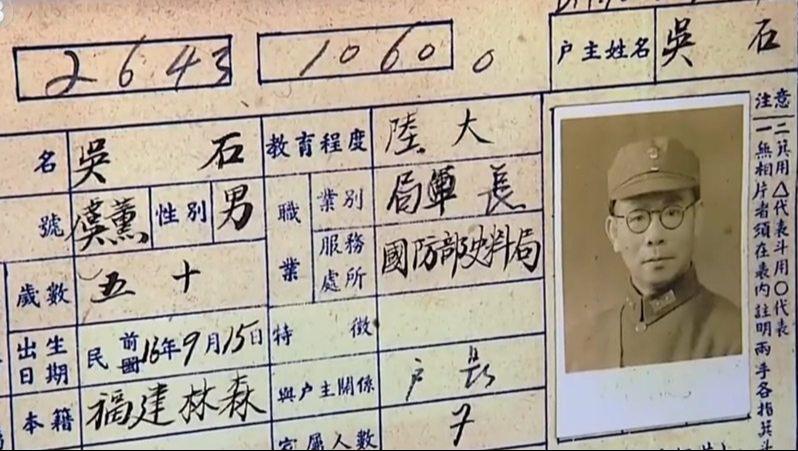 2643 10600
户主姓名 吳石
名 吳石 教育程度 陸大
號 虞薰 性別 男 職業 業別 局軍長
歲數 五十 服務處所 國防部史料局
出生日期 民前國16年9月15日 特徵
本籍 福建林森 與户主關係 户長
家屬人數 7
注意
一無相片者須在表內註明兩手各指箕斗
二箕用△代表斗用〇代表